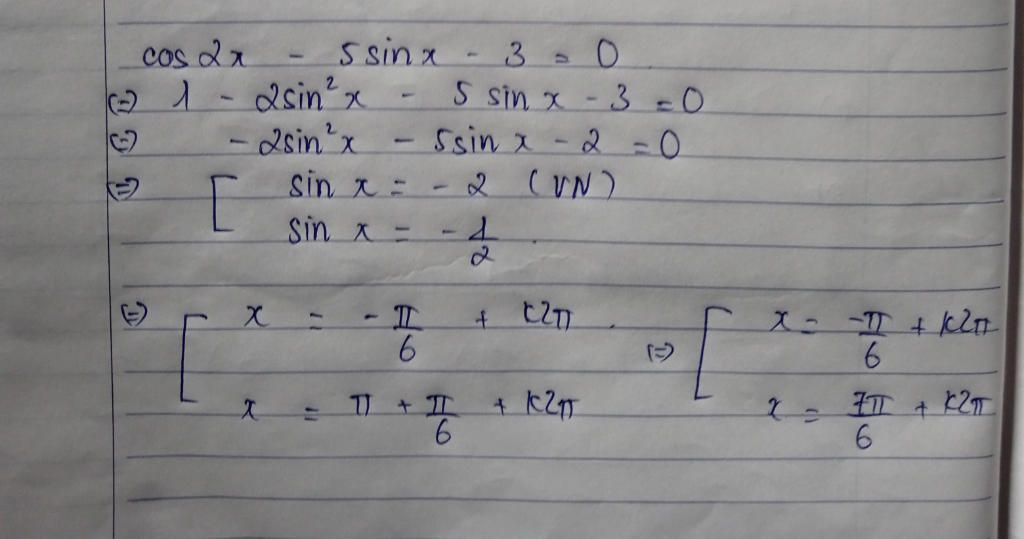 cos 2x - 5 sin x - 3 = 0
(=) 1 - 2sin²x - 5 sin x - 3 = 0
(=) - 2sin²x - 5sin x - 2 = 0
(=) [ sin x = - 2 (VN)
sin x = - 1/2.
(=) [ x = - π/6 + k2π. (=) [ x = -π/6 + k2π
x = π + π/6 + k2π x = 7π/6 + k2π